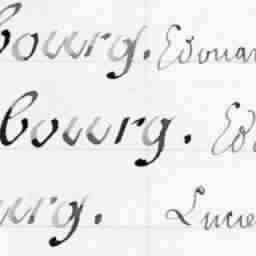 bourg. Edouar
bourg. Ed
urg. Lucie